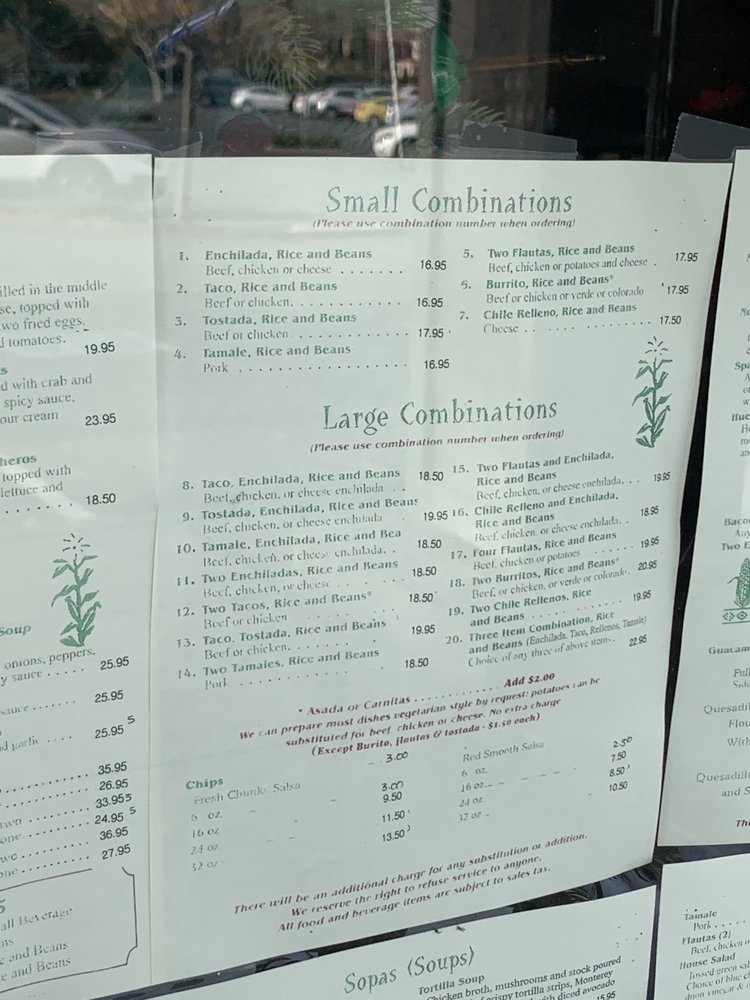 illed in the middle
se, topped with
wo fried eggs,
d tomatoes.
19.95
s
ed with crab and
spicy sauce,
our cream
23.95
heros
topped with
lettuce and
18.50
Soup
onions, peppers,
y sauce ..... 25.95
sauce ....... 25.95
nd garlic .... 25.95 5
35.95
26.95
two ......... 33.95 5
one ......... 24.95 5
wo ......... 36.95
one ......... 27.95
S
all Beverage
ns
e and Beans
e and Beans
Small Combinations
(Please use combination number when ordering)
1. Enchilada, Rice and Beans
Beef, chicken or cheese ....... 16.95
2. Taco, Rice and Beans
Beef or chicken. ............ 16.95
3. Tostada, Rice and Beans
Beef or chicken ............. 17.95
4. Tamale, Rice and Beans
Pork .................. 16.95
5. Two Flautas, Rice and Beans
Beef, chicken or potatoes and cheese . 17.95
6. Burrito, Rice and Beans*
Beef or chicken or verde or colorado 17.95
7. Chile Relleno, Rice and Beans
Cheese .. .......... 17.50
Large Combinations
(Please use combination number when ordering)
8. Taco, Enchilada, Rice and Beans 18.50
Beef, chicken, or cheese enchilada . .
9. Tostada, Enchilada, Rice and Beans
Beef, chicken, or cheese enchilada 19.95
10. Tamale, Enchilada, Rice and Bea
Beef, chicken, or cheese enchilada. . 18.50
11. Two Enchiladas, Rice and Beans
Beef, chicken, or cheese ....... 18.50
12. Two Tacos, Rice and Beans*
Beef or chicken ....... 18.50
13. Taco, Tostada, Rice and Beans
Beef or chicken. ......... 19.95
14. Two Tamales, Rice and Beans
Pork ............... 18.50
15. Two Flautas and Enchilada,
Rice and Beans
Beef, chicken, or cheese enchilada. . . 19.95
16. Chile Relleno and Enchilada,
Rice and Beans
Beef, chicken, or cheese enchilada. . 18.95
17. Four Flautas, Rice and Beans
Beef, chicken or potatoes ...... 19.95
18. Two Burritos, Rice and Beans*
Beef, or chicken, or verde or colorado. 20.95
19. Two Chile Rellenos, Rice
and Beans .......... 19.95
20. Three Item Combination, Rice
and Beans (Enchilada, Taco, Rellenos, Tamale)
Choice of any three of above items. . 22.95
* Asada or Carnitas ............ Add $2.00
We can prepare most dishes vegetarian style by request; potatoes can be
substituted for beef, chicken or cheese. No extra charge
(Except Burito, flautas & tostada - $1.50 each)
Chips 3.00
Fresh Chunky Salsa
6 oz. 3.00
16 oz 9.50
24 oz 11.50
32 oz 13.50
Red Smooth Salsa
6 oz. 2.50
16 oz 7.50
24 oz 8.50
32 oz 10.50
There will be an additional charge for any substitution or addition.
We reserve the right to refuse service to anyone.
All food and beverage items are subject to sales tax.
Sopas (Soups)
Tortilla Soup
Chicken broth, mushrooms and stock poured
crispy tortilla strips, Monterey
with diced avocado
15.95
Spa
Hue
Bacon
Two E
Guacam
Full
Side
Quesadil
Flou
With
Quesadill
and S
The
Tamale
Pork ....
Flautas (2)
Beef, chicken o
House Salad
Tossed green sal
Choice of blue c